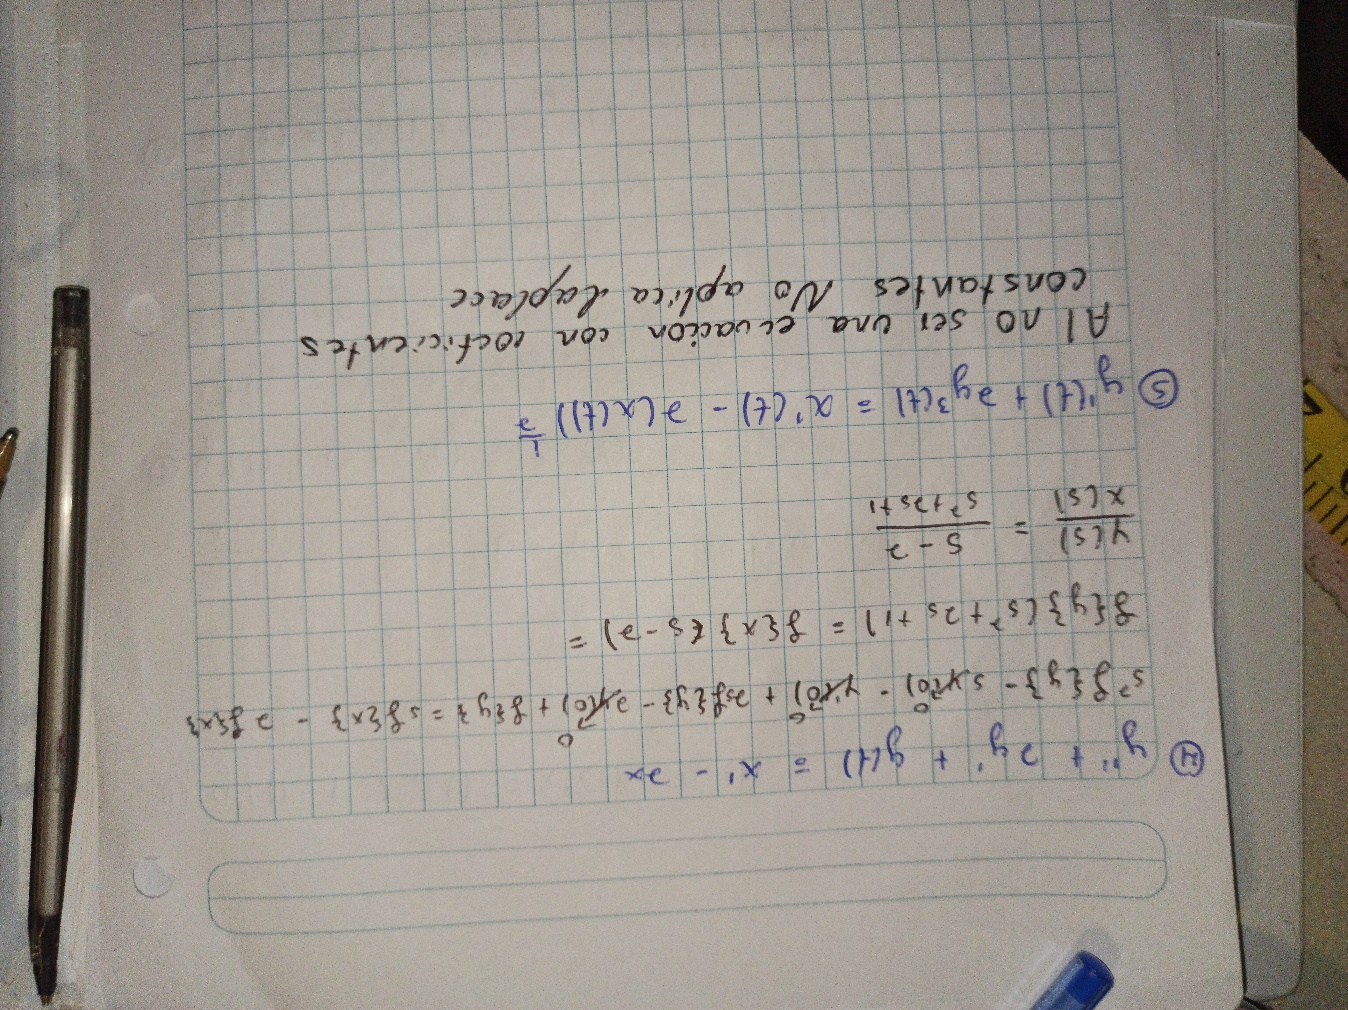 ④ y'' + 2y' + y(t) = x' - 2x
s²ℒ{y} - sy(0) - y'(0) + 2sℒ{y} - 2y(0) + ℒ{y} = sℒ{x} - 2ℒ{x}
0 0 0
ℒ{y}(s² + 2s + 1) = ℒ{x}(s - 2) =
Y(s)/X(s) = s - 2/s² + 2s + 1
⑤ y'(t) + 2y³(t) = x'(t) - 2(x(t))^1/2
Al no ser una ecuacion con coeficientes
constantes No aplica Laplace